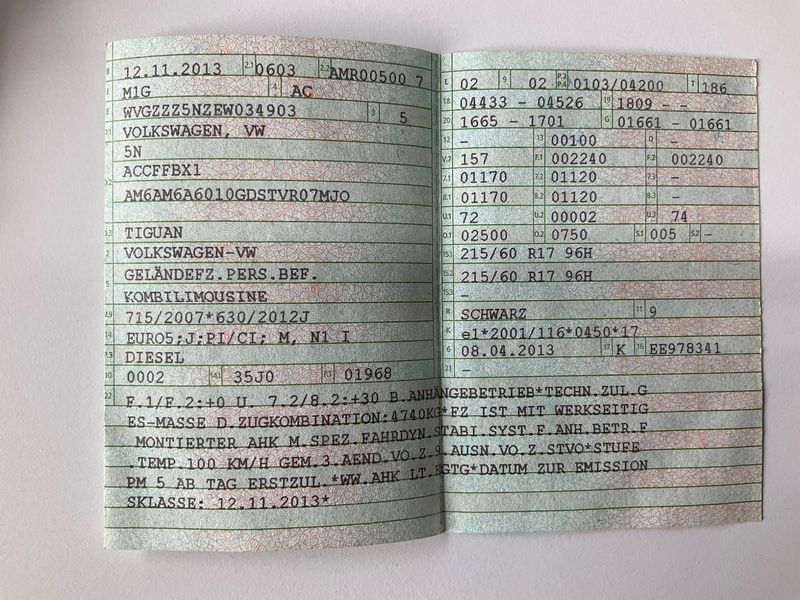 B 12.11.2013 2.1 0603 2.2 AMR00500 7
J M1G 4 AC
E WVGZZZ5NZEW034903 3 5
D.1 VOLKSWAGEN, VW
5N
ACCFFBX1
D.2 AM6AM6A6010GDSTVR07MJO
D.3 TIGUAN
2 VOLKSWAGEN-VW
5 GELÄNDEFZ.PERS.BEF.
KOMBILIMOUSINE
V.9 715/2007*630/2012J
14 EURO5;J;PI/CI; M, N1 I
P.3 DIESEL
10 0002 14.1 35J0 P.1 01968
22 F.1/F.2:+0 U. 7.2/8.2:+30 B.ANHÄNGEBETRIEB*TECHN.ZUL.G
ES-MASSE D.ZUGKOMBINATION:4740KG*FZ IST MIT WERKSEITIG
MONTIERTER AHK M.SPEZ.FAHRDYN.STABI.SYST.F.ANH.BETR.F
.TEMP.100 KM/H GEM.3.AEND.VO.Z.9.AUSN.VO.Z.STVO*STUFE
PM 5 AB TAG ERSTZUL.*WW.AHK LT.EGTG*DATUM ZUR EMISSION
SKLASSE: 12.11.2013*
L 02 9 02 P.2 P.4 0103/04200 T 186
18 04433 - 04526 19 1809 - -
20 1665 - 1701 G 01661 - 01661
12 - 13 00100 Q -
V.7 157 F.1 002240 F.2 002240
7.1 01170 7.2 01120 7.3 -
8.1 01170 8.2 01120 8.3 -
U.1 72 U.2 00002 U.3 74
O.1 02500 O.2 0750 S.1 005 S.2 -
15.1 215/60 R17 96H
15.2 215/60 R17 96H
15.3 -
R SCHWARZ 11 9
K e1*2001/116*0450*17
6 08.04.2013 17 K 16 EE978341
21 -